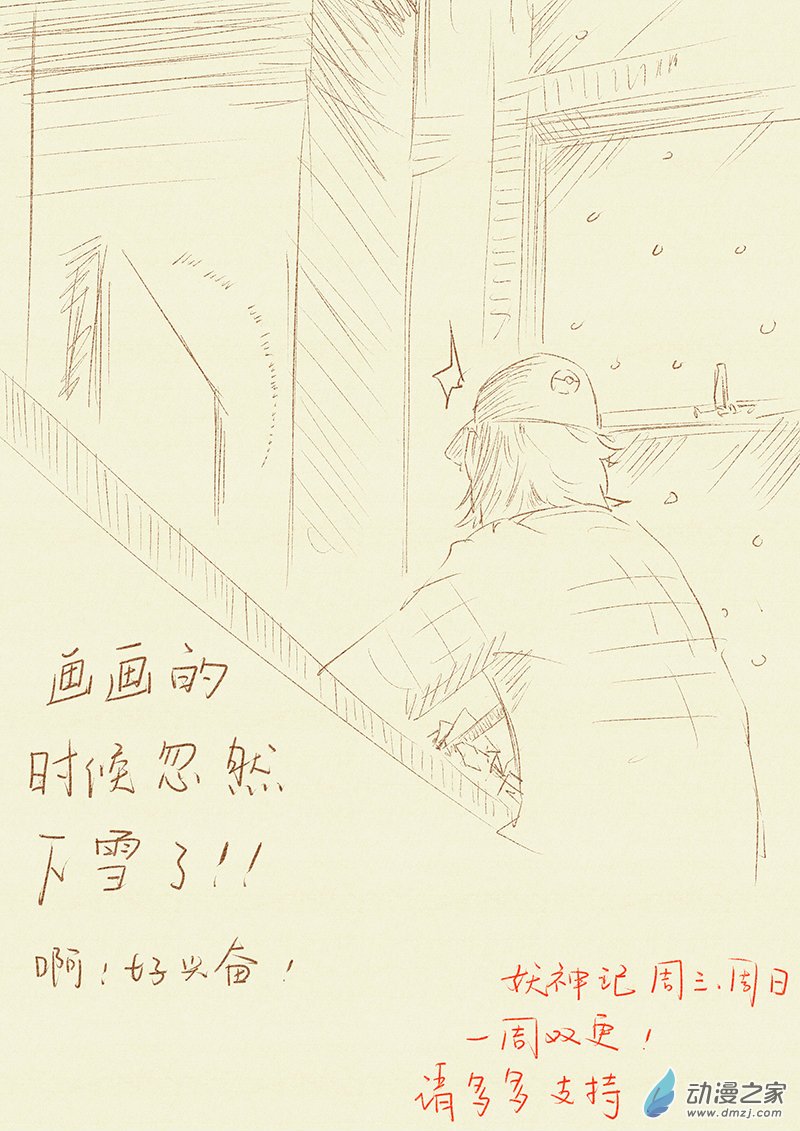 画画的
时候忽然
下雪了!!
啊!好兴奋!
妖神记 周三、周日
一周双更!
请多多支持
动漫之家
www.dmzj.com